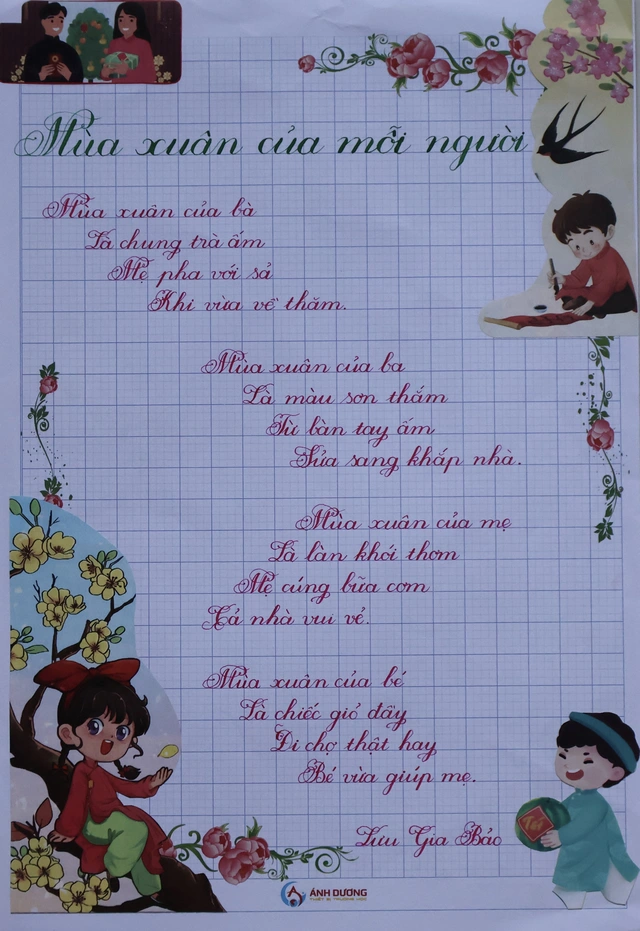 Mùa xuân của mỗi người
Mùa xuân của bà
Là chung trà ấm
Mẹ pha với sả
Khi vừa về thăm.
Mùa xuân của ba
Là màu sơn thắm
Từ bàn tay ấm
Sửa sang khắp nhà.
Mùa xuân của mẹ
Là làn khói thơm
Mẹ cúng bữa cơm
Cả nhà vui vẻ.
Mùa xuân của bé
Là chiếc giỏ đầy
Đi chợ thật hay
Bé vừa giúp mẹ.
Lưu Gia Bảo
Tết
ÁNH DƯƠNG
THIẾT BỊ TRƯỜNG HỌC